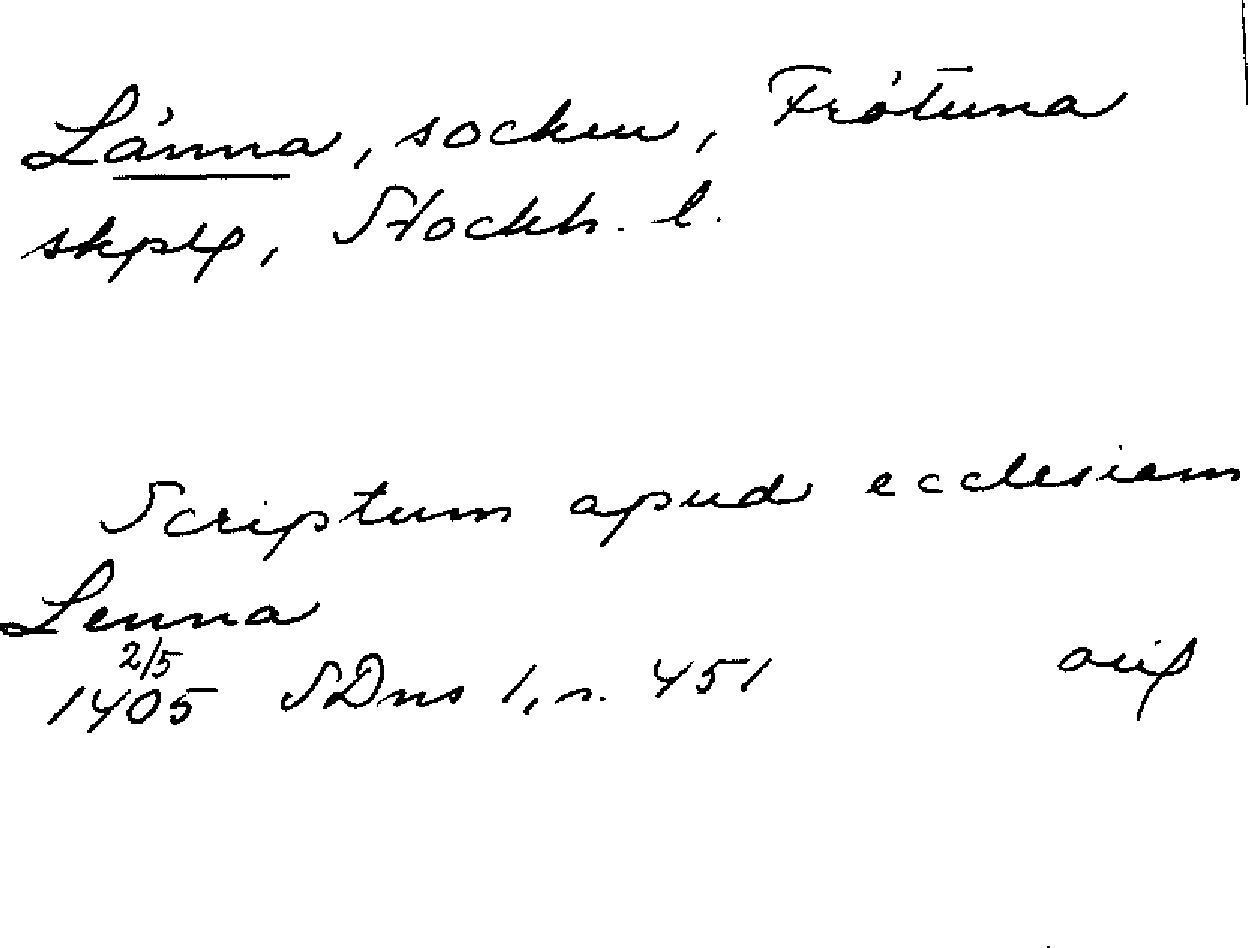 Länna, socken, Frötuna
skplg, Stockh. l.
Scriptum apud ecclesiam
Lenna
2/5
1405 SDns 1, n. 451 orig